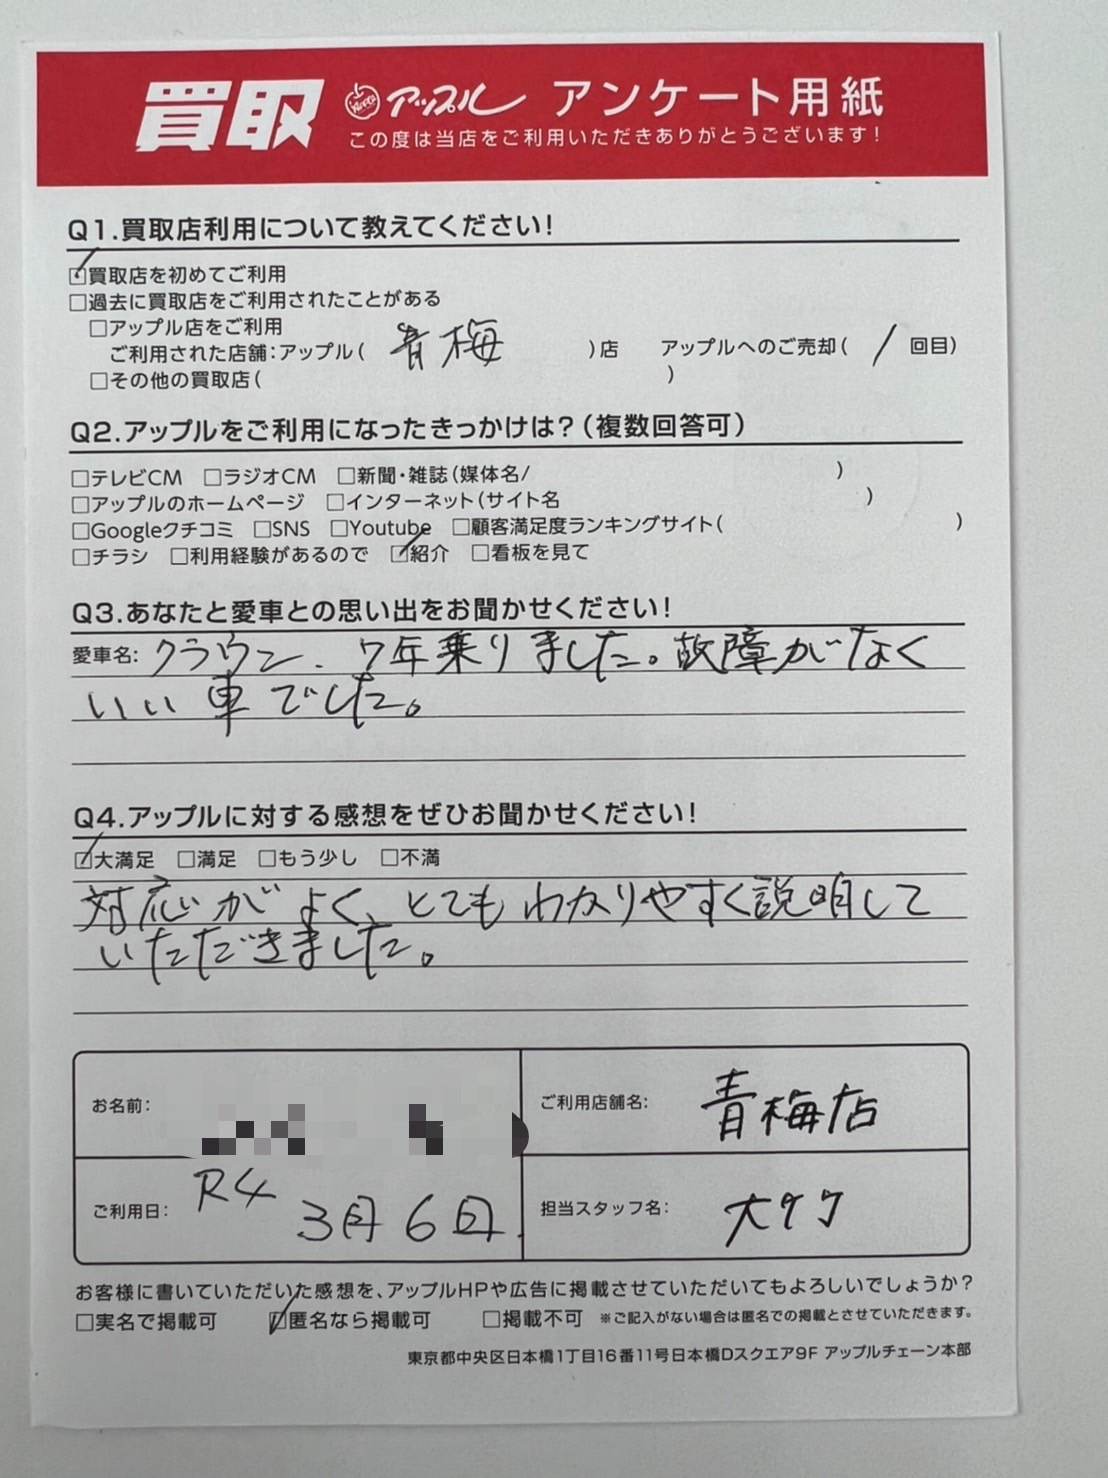 買取 アップル アンケート用紙
この度は当店をご利用いただきありがとうございます!
Q1.買取店利用について教えてください!
☑買取店を初めてご利用
□過去に買取店をご利用されたことがある
□アップル店をご利用
ご利用された店舗:アップル( 青梅 )店 アップルへのご売却( / 回目)
□その他の買取店( )
Q2.アップルをご利用になったきっかけは?(複数回答可)
□テレビCM □ラジオCM □新聞・雑誌(媒体名/ )
□アップルのホームページ □インターネット(サイト名 )
□Googleクチコミ □SNS □Youtube □顧客満足度ランキングサイト( )
□チラシ □利用経験があるので ☑紹介 □看板を見て
Q3.あなたと愛車との思い出をお聞かせください!
愛車名: クラウン、7年乗りました。故障がなく
いい車でした。
Q4.アップルに対する感想をぜひお聞かせください!
☑大満足 □満足 □もう少し □不満
対応がよく、とてもわかりやすく説明して
いただきました。
お名前:
ご利用店舗名: 青梅店
ご利用日: R4 3月6日
担当スタッフ名: 大
お客様に書いていただいた感想を、アップルHPや広告に掲載させていただいてもよろしいでしょうか?
□実名で掲載可 ☑匿名なら掲載可 □掲載不可 ※ご記入がない場合は匿名での掲載とさせていただきます。
東京都中央区日本橋1丁目16番11号日本橋Dスクエア9F アップルチェーン本部